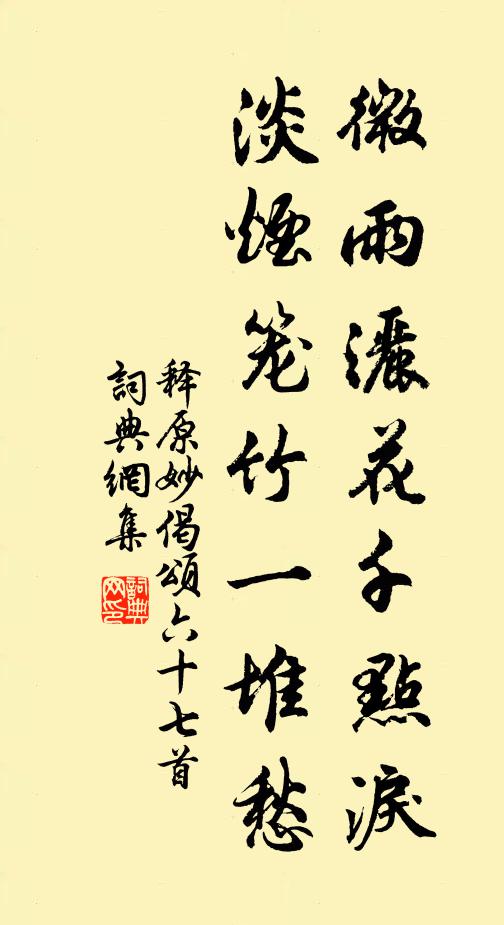 微雨灑花千點淚
淡煙笼竹一堆愁
释原妙偈頌六十七首
詞典網集
詞典网印